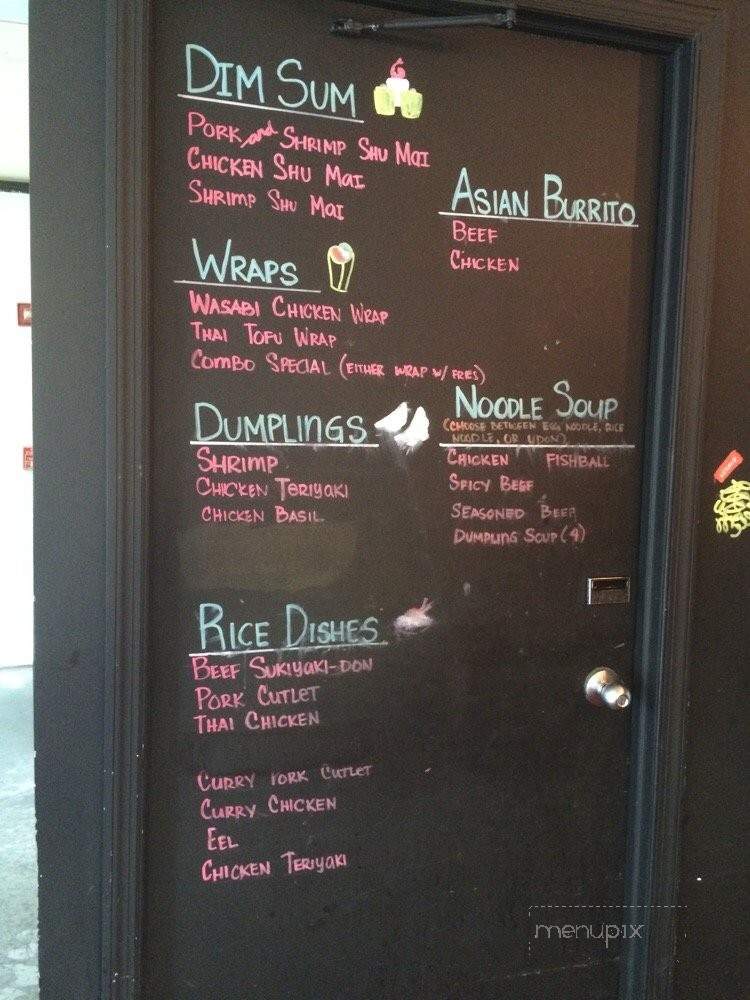 DIM SUM
PORK and SHRIMP SHU MAI
CHICKEN SHU MAI
SHRIMP SHU MAI
ASIAN BURRITO
BEEF
CHICKEN
WRAPS
WASABI CHICKEN WRAP
THAI TOFU WRAP
COMBO SPECIAL (EITHER WRAP W/ FRIES)
DUMPLINGS
SHRIMP
CHICKEN TERIYAKI
CHICKEN BASIL
NOODLE SOUP
(CHOOSE BETWEEN EGG NOODLE, RICE
NOODLE, OR UDON)
CHICKEN FISHBALL
SPICY BEEF
SEASONED BEEF
DUMPLING SOUP (4)
RICE DISHES
BEEF SUKIYAKI-DON
PORK CUTLET
THAI CHICKEN
CURRY PORK CUTLET
CURRY CHICKEN
EEL
CHICKEN TERIYAKI
menupix